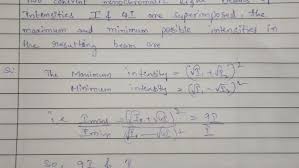 Two coherent monochromatic light beams of
Intensities I & 4I are superimposed, the
maximum and minimum posible intensities in
the resulting beam are
The Maximum intensity = (√I₁+√I₂)²
Minimum intensity = (√I₁-√I₂)²
i.e Imax/Imin = (√I₁+√I₂)²/(√I₁-√I₂)² = 9I/I
So, 9I & I